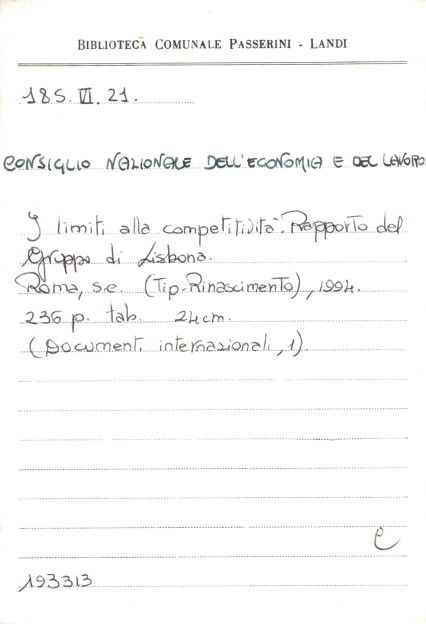 BIBLIOTECA COMUNALE PASSERINI - LANDI
18S.VI.21.
CONSIGLIO NAZIONALE DELL'ECONOMIA E DEL LAVORO.
I limiti alla competitività. Rapporto del
Gruppo di Lisbona.
Roma, s.e. (Tip. Rinascimento), 1994.
236 p. tab. 24 cm.
(Documenti internazionali, 1).
e
193313